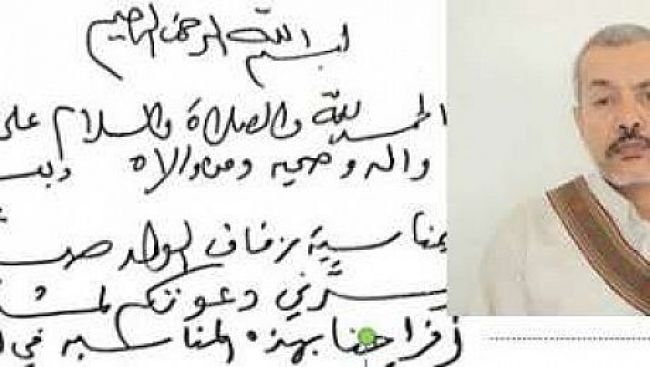 بسم الله الرحمن الرحيم
الحمد لله والصلاة والسلام على
واله وصحبه ومن والاه وبعد
بمناسبة زفاف الولد
يسرني دعوتكم
أفراحنا بهذه المناسبه في